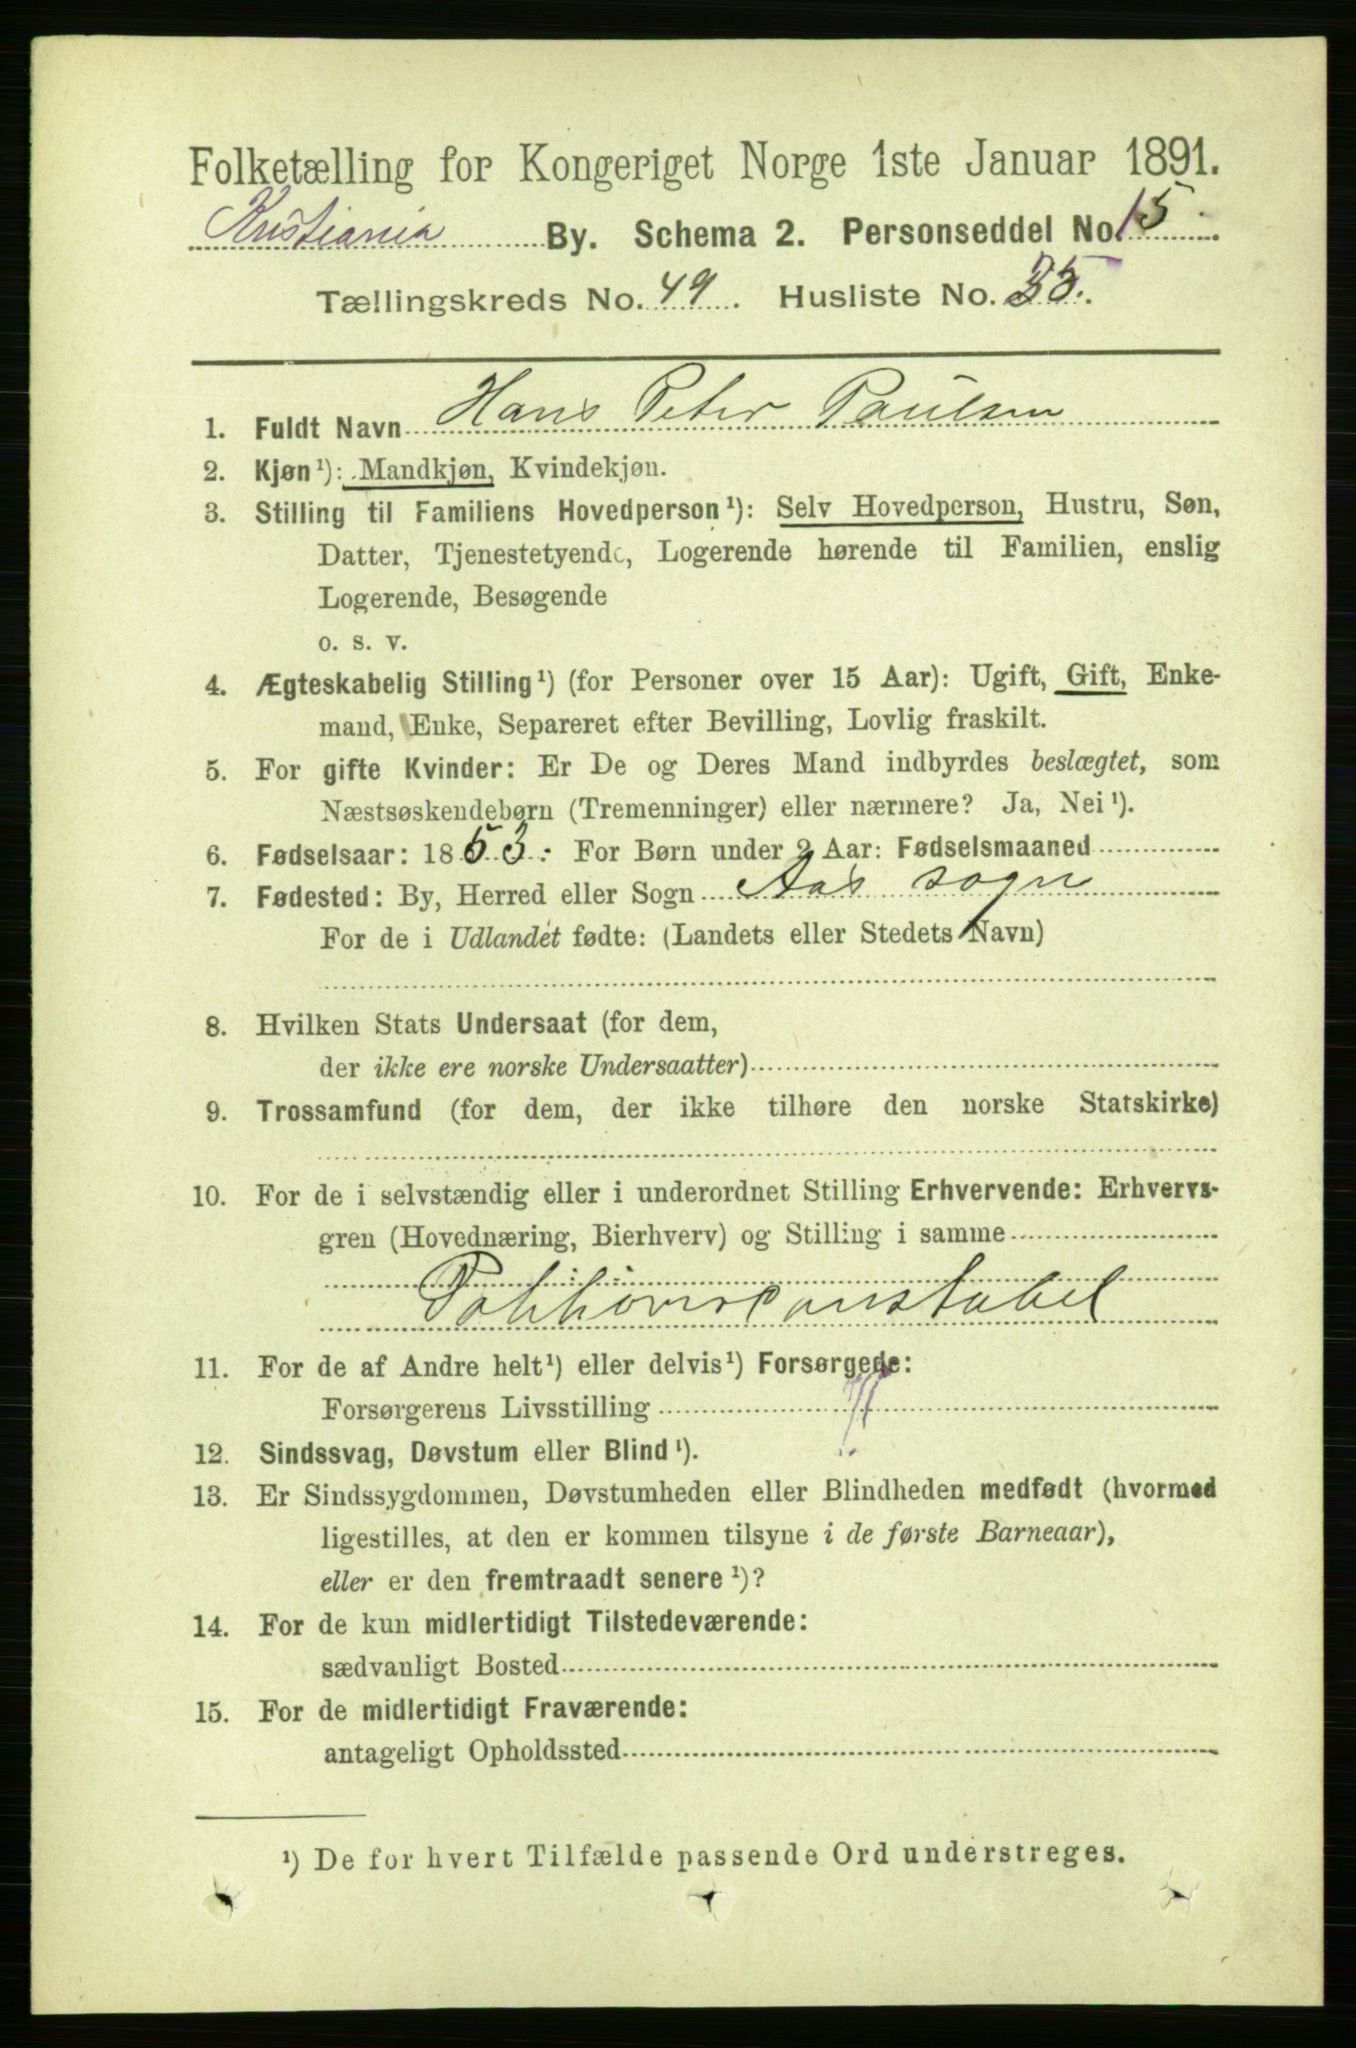 Folketælling for Kongeriget Norge 1ste Januar 1891.
Kristiania By. Schema 2. Personseddel No. 15.
Tællingskreds No. 49. Husliste No. 35.
1. Fuldt Navn Hans Peter Paulsen
2. Kjøn¹): Mandkjøn, Kvindekjøn.
3. Stilling til Familiens Hovedperson¹): Selv Hovedperson, Hustru, Søn,
Datter, Tjenestetyende, Logerende hørende til Familien, enslig
Logerende, Besøgende
o. s. v.
4. Ægteskabelig Stilling¹) (for Personer over 15 Aar): Ugift, Gift, Enke-
mand, Enke, Separeret efter Bevilling, Lovlig fraskilt.
5. For gifte Kvinder: Er De og Deres Mand indbyrdes beslægtet, som
Næstsøskendebørn (Tremenninger) eller nærmere? Ja, Nei¹).
6. Fødselsaar: 1853. For Børn under 2 Aar: Fødselsmaaned
7. Fødested: By, Herred eller Sogn Aas sogn
For de i Udlandet fødte: (Landets eller Stedets Navn)
8. Hvilken Stats Undersaat (for dem,
der ikke ere norske Undersaatter)
9. Trossamfund (for dem, der ikke tilhøre den norske Statskirke)
10. For de i selvstændig eller i underordnet Stilling Erhvervende: Erhvervs-
gren (Hovednæring, Bierhverv) og Stilling i samme
11. For de af Andre helt¹) eller delvis¹) Forsørgede:
Forsørgerens Livsstilling
12. Sindssvag, Døvstum eller Blind¹).
13. Er Sindssygdommen, Døvstumheden eller Blindheden medfødt (hvormed
ligestilles, at den er kommen tilsyne i de første Barneaar),
eller er den fremtraadt senere¹)?
14. For de kun midlertidigt Tilstedeværende:
sædvanligt Bosted
15. For de midlertidigt Fraværende:
antageligt Opholdssted
¹) De for hvert Tilfælde passende Ord understreges.